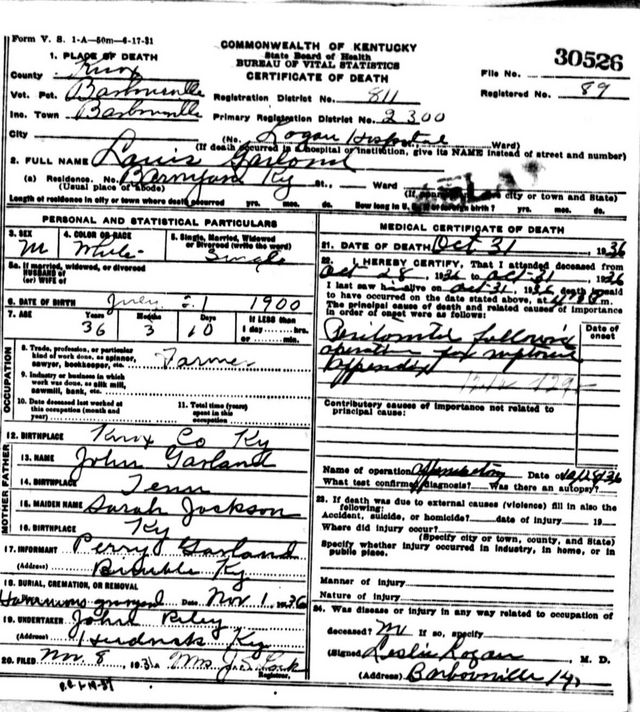 Form V. S. 1-A—50m—6-17-31
COMMONWEALTH OF KENTUCKY
State Board of Health
BUREAU OF VITAL STATISTICS
CERTIFICATE OF DEATH
30526
File No.
Registered No. 89
1. PLACE OF DEATH
County Knox
Vot. Pct. Barbourville
Inc. Town Barbourville
City
Registration District No. 811
Primary Registration District No. 2300
(No. Logan Hospital Ward)
(If death occurred in a hospital or institution, give its NAME instead of street and number)
2. FULL NAME Louis Garland
(a) Residence. No. Ky St., Ward
(Usual place of abode) city or town and State)
Length of residence in city or town where death occurred yrs. mos. ds. How long in U. S. if of foreign birth? yrs. mos. ds.
PERSONAL AND STATISTICAL PARTICULARS
3. SEX M
4. COLOR OR RACE White
5. Single, Married, Widowed or Divorced (write the word) Single
5a. If married, widowed, or divorced
HUSBAND of
(or) WIFE of
6. DATE OF BIRTH July 21 1900
7. AGE Years 36 Months 3 Days 10 If LESS than 1 day hrs. or min.
OCCUPATION
8. Trade, profession, or particular kind of work done, as spinner, sawyer, bookkeeper, etc. Farmer
9. Industry or business in which work was done, as silk mill, sawmill, bank, etc.
10. Date deceased last worked at this occupation (month and year)
11. Total time (years) spent in this occupation
12. BIRTHPLACE Knox Co Ky
FATHER
13. NAME John Garland
14. BIRTHPLACE Tenn
MOTHER
15. MAIDEN NAME Sarah Jackson
16. BIRTHPLACE Ky
17. INFORMANT Perry Garland
(Address) Ky
18. BURIAL, CREMATION, OR REMOVAL
graveyard Date Nov 1 1936
19. UNDERTAKER John Riley
(Address) Ky
20. FILED Nov. 8, 193 Mrs. J. S.
Registrar.
MEDICAL CERTIFICATE OF DEATH
21. DATE OF DEATH Oct 31 1936
22. I HEREBY CERTIFY, That I attended deceased from
Oct 28, 1936 to Oct 31, 1936
I last saw h alive on Oct 31, 1936 death is said
to have occurred on the date stated above, at m.
The principal cause of death and related causes of importance
in order of onset were as follows:
Date of onset
Peritonitis following
operation for ruptured
appendix
Contributory causes of importance not related to
principal cause:
Name of operation Date of
What test confirmed diagnosis? Was there an autopsy?
23. If death was due to external causes (violence) fill in also the
following:
Accident, suicide, or homicide? date of injury 19
Where did injury occur?
(Specify city or town, county, and State)
Specify whether injury occurred in industry, in home, or in
public place.
Manner of injury
Nature of injury
24. Was disease or injury in any way related to occupation of
deceased? If so, specify
(Signed) Leslie Logan M. D.
(Address) Barbourville Ky